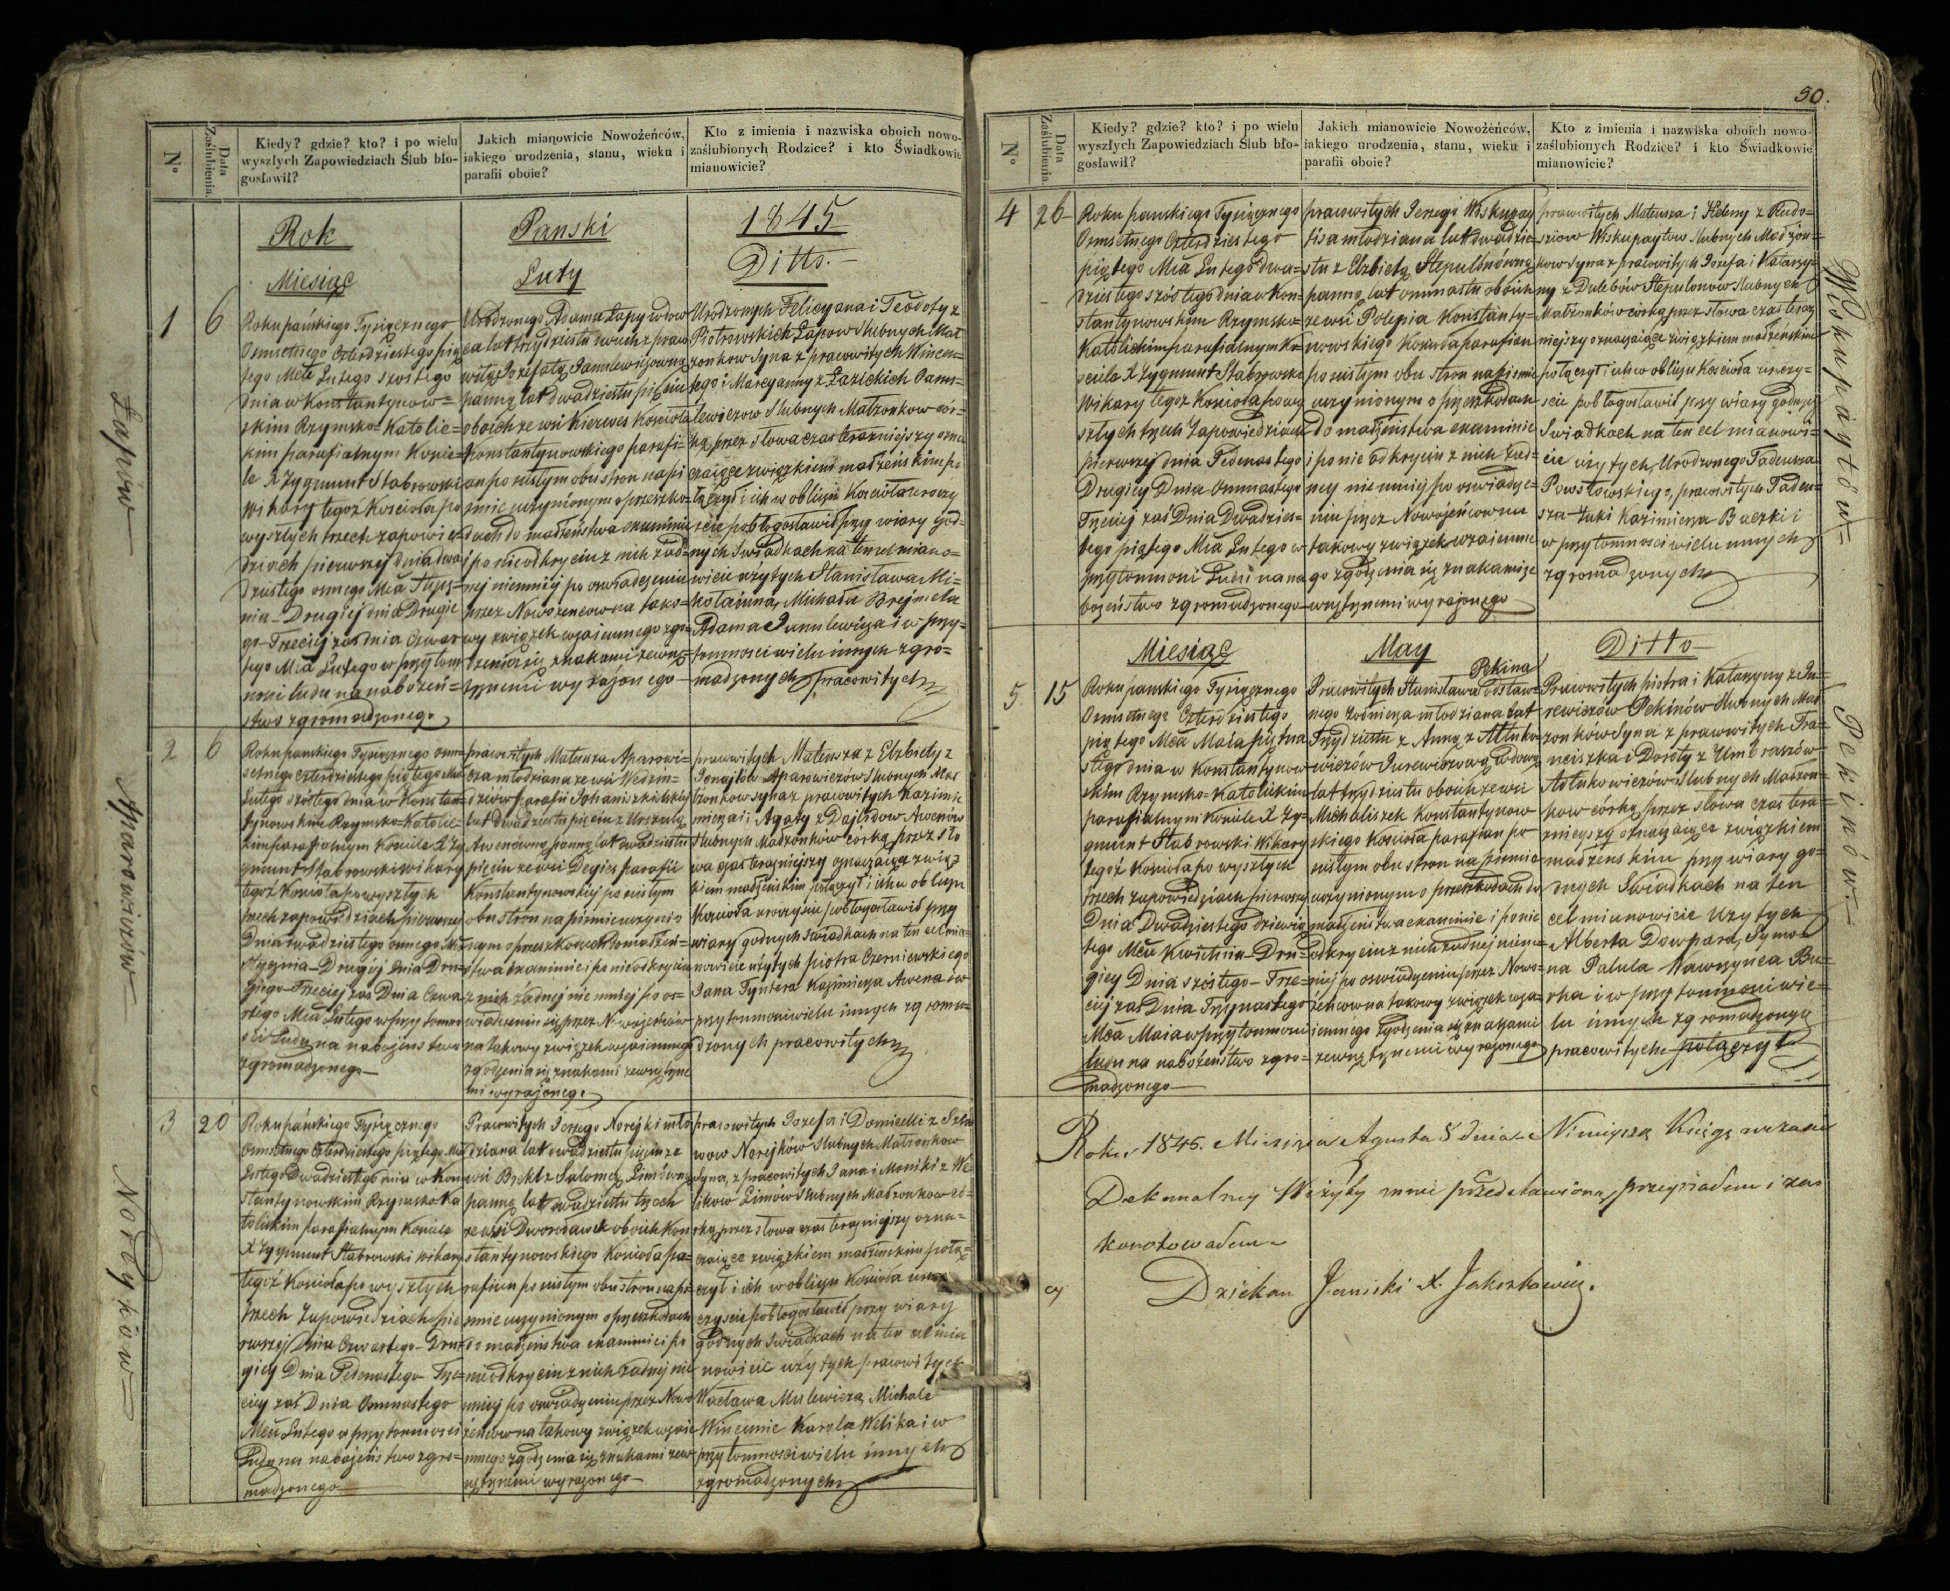 N°
Data Zaślubienia.
Kiedy? gdzie? kto? i po wielu
wyszłych Zapowiedziach Ślub bło-
gosławił?
Jakich mianowicie Nowożeńców,
iakiego urodzenia, stanu, wieku i
parafii oboie?
Kto z imienia i nazwiska oboich nowo-
zaślubionych Rodzice? i kto Świadkowie
mianowicie?
Rok
Panski
1845
Miesiąc
Luty
Ditto.
Łapów
1
6
Roku pańskiego Tysiącznego
Osmsetnego Czterdziestego pią
tego Mca Lutego szostego
dnia w Konstantynow=
skim Rzymsko=Katolic=
kim parafialnym Koście=
le X Zygmunt Stabrowski
Wikary tegoż Kościoła po
wyszłych trzech zapowied
dziach pierwszej dnia dwa
dziestego osmego Mca Stycz=
nia Drugiej dnia Drugie
go Trzeciej zaś dnia Czwar
tego Mca Lutego w przytom
ności ludu na nabożeń=
stwo zgromadzonego
Urodzonego Adama Łapy wdow
ca lat trzydziestu dwuch z praco
witą Jozefatą Janulewiczowną
panną lat dwadziestu pięciu
oboich ze wsi Kierwes Kościoła
Konstantynowskiego parafi=
an po ścisłym obu stron na pi
śmie uczynionym o przeszko=
dach do małżeństwa examinie
i po nieodkryciu z nich żad=
nej niemniej po oswiadczeniu
przez Nowożencow na tako=
wy związek wzaiemnego zgo=
dzenia się znakami zewnę=
trznemi wyrażonego
Urodzonych Felicyana i Teodoty z
Piotrowskich Łapow slubnych Mał
żonkow Syna z pracowitych Wincen=
tego i Marcyanny z Łazickich Janu=
lewiczow Slubnych Małżonkow cór=
ką przez słowa czas teraźniejszy ozna
czaiące związkiem małżeńskim po
łączył i ich w obliczu Kościoła uroczy
ście pobłogosławił przy wiary god=
nych Swiadkach na ten cel miano=
wicie użytych Stanisława Mi=
Michała
Adama Janulewicza i w przy=
tomności wielu innych zgro=
madzonych pracowitych
Aparowiczow
2
6
Roku panskiego Tysiącznego osm=
setnego czterdziestego piątego Mca
Lutego szóstego dnia w Konstan
tynowskim Rzymsko-Katolic=
kim parafialnym Kościele X Zy
gmunt Stabrowski wikary
tegoż Kościoła po wyszłych
trzech zapowiedziach pierwszej
Dnia dwadziestego osmego Mca
Stycznia Drugiej Dnia Dru=
giego Trzeciej zaś Dnia Czwa
rtego Mca Lutego w przytomno
ści Ludu na nabożeństwo
zgromadzonego
pracowitych Mateusza Aparowi=
cza młodziana ze wsi
parafii
lat dwadziestu pięciu z Urszulą
Awenowną panną lat dwadziestu
pięciu ze wsi parafii
Konstantynowskiej po ścisłym
obu stron na piśmie uczynio
nym o przeszkodach do małżeń=
stwa examinie i po nieodkryciu
z nich żadnej nie mniej po os=
wiadczeniu się przez Nowożeńców
na takowy związek wzaiemnego
zgodzenia się znakami zewnętrzne
mi wyrażonego
pracowitych Mateusza i Elzbiety z
Aparowiczów slubnych Mał
żonkow syna z pracowitych Kazimie
mierza i Agaty z Awenow
slubnych Małżonków córką przez sło
wa czas teraźniejszy oznaczaiące związ
kiem małżeńskim połączył i ich w obliczu
Kościoła uroczyście pobłogosławił przy
wiary godnych świadkach na ten cel mia=
nowicie użytych Piotra Czerniewskiego
Jana Tyntera Kazimierza Awena i w
przytomności wielu innych zgroma=
dzonych pracowitych
Noreykow
3
20
Roku pańskiego Tysiącznego
Osmsetnego Czterdziestego piątego Mca
Lutego Dwadziestego dnia w Kon
stantynowskim Rzymsko Ka
tolickim parafialnym Kościele
X Zygmunt Stabrowski wikary
tegoż Kościoła po wyszłych
trzech Zapowiedziach pie
rwszej Dnia Czwartego Dru
giey Dnia Tr=
ciey zaś Dnia Osmnastego
Mca Lutego w przytomności
Ludu na nabożeństwo zgro=
madzonego
Pracowitych Jerzego Norejki mło
dziana lat dwadziestu pięciu ze
wsi z Salomeą Zimówną
panną lat dwadziestu trzech
ze wsi oboich Kon
stantynowskiego Kościoła pa=
rafian po ścisłym obu stron na pi
śmie uczynionym o przeszkodach
do małżeństwa examinie i po
nieodkryciu z nich żadnej nie
mniej po oswiadczeniu przez Nowo
żeńcow na takowy związek wzaie
mnego zgodzenia się znakami zew
nętrznemi wyrażonego
pracowitych Jozefa i Domicelli z
Norejków slubnych Małżonkow
Syna, z pracowitych Jana i Moniki z
Zimów Slubnych Małżonkow có=
rką przez słowa czas teraźniejszy ozna=
czaiące związkiem małżeńskim połą=
czył i ich w obliczu Kościoła uro
czyście pobłogosławił przy wiary
godnych Swiadkach na ten cel mia
nowicie użytych pracowitych
Wacława Mulewicza Michała
Karola Welika i w
przytomności wielu innych
zgromadzonych
50.
N°
Data Zaślubienia.
Kiedy? gdzie? kto? i po wielu
wyszłych Zapowiedziach Ślub bło-
gosławił?
Jakich mianowicie Nowożeńców,
iakiego urodzenia, stanu, wieku i
parafii oboie?
Kto z imienia i nazwiska oboich nowo-
zaślubionych Rodzice? i kto Świadkowie
mianowicie?
4
26
Roku panskiego Tysiącznego
Osmsetnego Czterdziestego
piątego Mca Lutego Dwa=
dziestego szóstego dnia w Kon=
stantynowskim Rzymsko=
Katolickim parafialnym Ko=
sciele X Zygmunt Stabrowski
Wikary tegoż Kościoła po wy
szłych trzech Zapowiedziach
pierwszej dnia
Drugiey Dnia Osmnastego
Trzeciej zaś Dnia Dwadzies=
tego piątego Mca Lutego w
przytomności Ludu na na
bożeństwo zgromadzonego
pracowitych Jerzego Wiskupay
tisa młodziana lat dwadzie=
stu z Elzbietą Stepulonówną
panną lat osmnastu oboich
ze wsi Polepia Konstanty=
nowskiego Kościoła parafian
po ścisłym obu stron na piśmie
uczynionym o przeszkodach
do małżeństwa examinie
i po nieodkryciu z nich żad=
ney nie mniej po oswiadcze=
niu przez Nowożeńcow na
takowy związek wzaiemne
go zgodzenia się znakami ze
wnętrznemi wyrażonego
pracowitych Mateusza i Heleny z Rudo=
Wiskupaytow slubnych Małżon=
kow Syna z pracowitych Jozefa i Katarzy=
ny z Dulebów Stepulonow slubnych
Małżonków córką przez słowa czas teraz
niejszy oznaczaiące związkiem małżeńskim
połączył i ich w obliczu Kościoła uroczy=
ście pobłogosławił przy wiary godnych
Swiadkach na ten cel mianowi=
cie użytych, Urodzonego Tadeusza
pracowitych Tadeu=
sza Kazimierza i
w przytomności wielu innych
zgromadzonych
Wiskupaytów
Miesiąc
May
Ditto
5
15
Roku panskiego Tysiącznego
Osmsetnego Czterdziestego
piątego Mca Maia piętna
stego dnia w Konstantynow
skim Rzymsko-Katolickim
parafialnym Kościele X Zy=
gmunt Stabrowski Wikary
tegoż Kościoła po wyszłych
trzech zapowiedziach pierwszey
Dnia Dwadziestego dziewią
tego Mca Kwietnia Dru=
giey Dnia szóstego Trze=
ciej zaś Dnia Trzynastego
Mca Maia w przytomności
Ludu na nabożeństwo zgro=
madzonego
Pekina
Pracowitych Stanisława odstaw=
nego żołnierza młodziana lat
Trzydziestu z Anną z Ałtuko
wiczow wdową
lat trzydziestu oboich ze wsi
Michaliszek Konstantynow
skiego Kościoła parafian po
ścisłym obu stron na piśmie
uczynionym o przeszkodach do
małżeństwa examinie i po nie
odkryciu z nich żadnej niem=
niej po oswiadczeniu przez Nowo=
żeńcow na takowy związek wza=
iemnego zgodzenia się znakami
zewnętrznemi wyrażonego
Pracowitych piotra i Katarzyny z
Pekinów slubnych Mał
żonkow Syna z pracowitych Fra=
nciszka i Doroty z
Ałtukowiczów slubnych Małżon=
kow córką przez słowa czas tera=
źniejszy oznaczaiące związkiem
małżenskim przy wiary go=
dnych Świadkach na ten
cel mianowicie Użytych
Alberta Dowpara, Symo=
na Palula Wawrzyńca Bu=
rha i w przytomności wie=
lu innych zgromadzonych
pracowitych połączył
Pekinów
Roku 1845. Miesiąca Agusta 8 dnia Niniejszą Księgę w czasie
Dekanalney Wizyty mnie przedstawioną przeyrzałem i za
konotowałem
Dziekan Janiski X. Jakszkewicz.